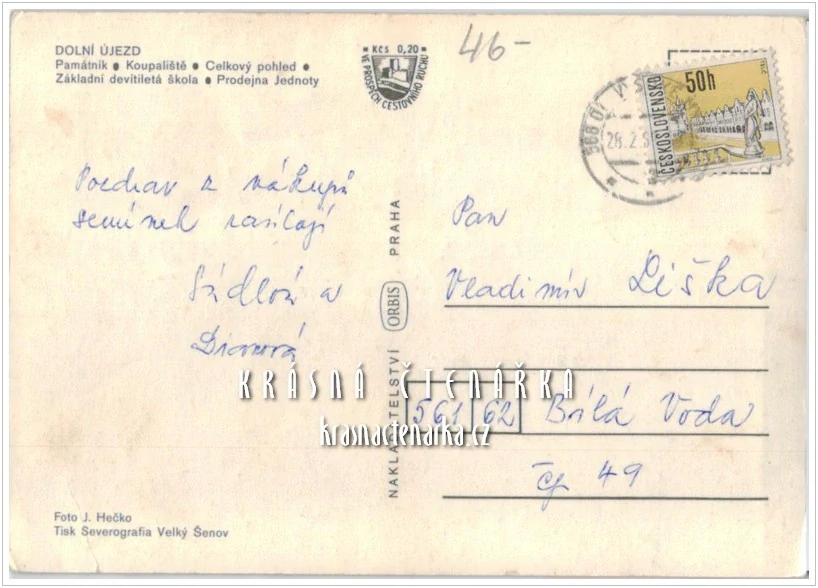 DOLNÍ ÚJEZD
Památník ● Koupaliště ● Celkový pohled ●
Základní devítiletá škola ● Prodejna Jednoty
Kčs 0,20
VE PROSPĚCH CESTOVNÍHO RUCHU
46-
50h
ČESKOSLOVENSKO
Pozdrav z nákupů
semínek zasílají
Sádlová a
Pan
Vladimír Liška
561 62 Bílá Voda
čp 49
NAKLADATELSTVÍ ORBIS PRAHA
KRÁSNÁ ČTENÁŘKA
krasnactenarka.cz
Foto J. Hečko
Tisk Severografia Velký Šenov